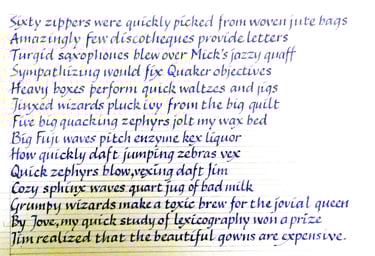 Sixty zippers were quickly picked from woven jute bags
Amazingly few discotheques provide letters
Turgid saxophones blew over Mick's jazzy quaff
Sympathizing would fix Quaker objectives
Heavy boxes perform quick waltzes and jigs
Jinxed wizards pluck ivy from the big quilt
Five big quacking zephyrs jolt my wax bed
Big Fuji waves pitch enzyme kex liquor
How quickly daft jumping zebras vex
Quick zephyrs blow, vexing daft Jim
Cozy sphinx waves quart jug of bad milk
Grumpy wizards make a toxic brew for the jovial queen
By Jove, my quick study of lexicography won a prize
Jim realized that the beautiful gowns are expensive.